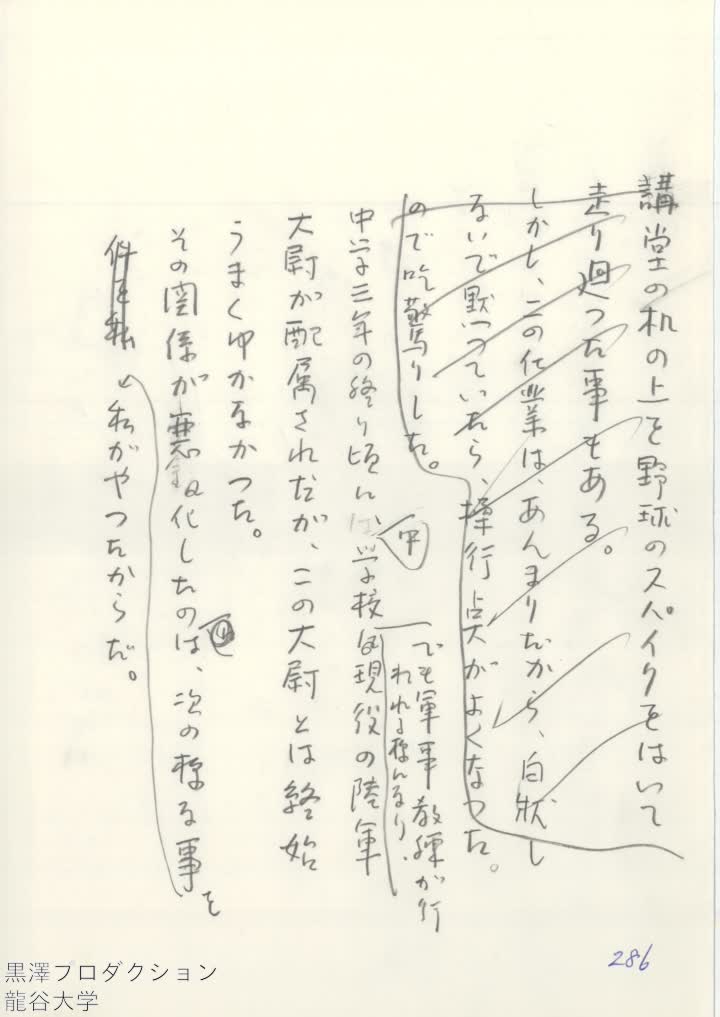 講堂の机の上を野球のスパイクをはいて
走り廻つた事もある。
しかし、この仕業は、あんまりだから、白状し
ないで黙つていたら、操行点がよくなつた。
ので吃驚りした。
でも軍事教練が行
われる様になり、
中
中学三年の終り頃に、学校に現役の陸軍
大尉が配属されたが、この大尉とは終始
うまくゆかなかつた。
その関係が悪化したのは、次の様な事を
件を転
私がやつたからだ。
286
黒澤プロダクション
龍谷大学